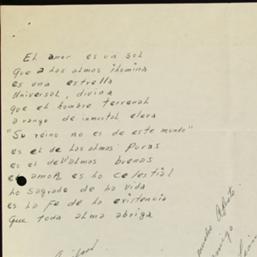 El amor es un sol
Que a las almas ilumina
es una estrella
Universal, divina
que el hombre terrenal
a rango de inmortal eleva
"Su reino no es de este mundo"
es el de las almas Puras
es el de almas buenas
el amor es lo celestial
Lo Sagrado de La Vida
es La Fe de La existencia
Que toda alma abriga